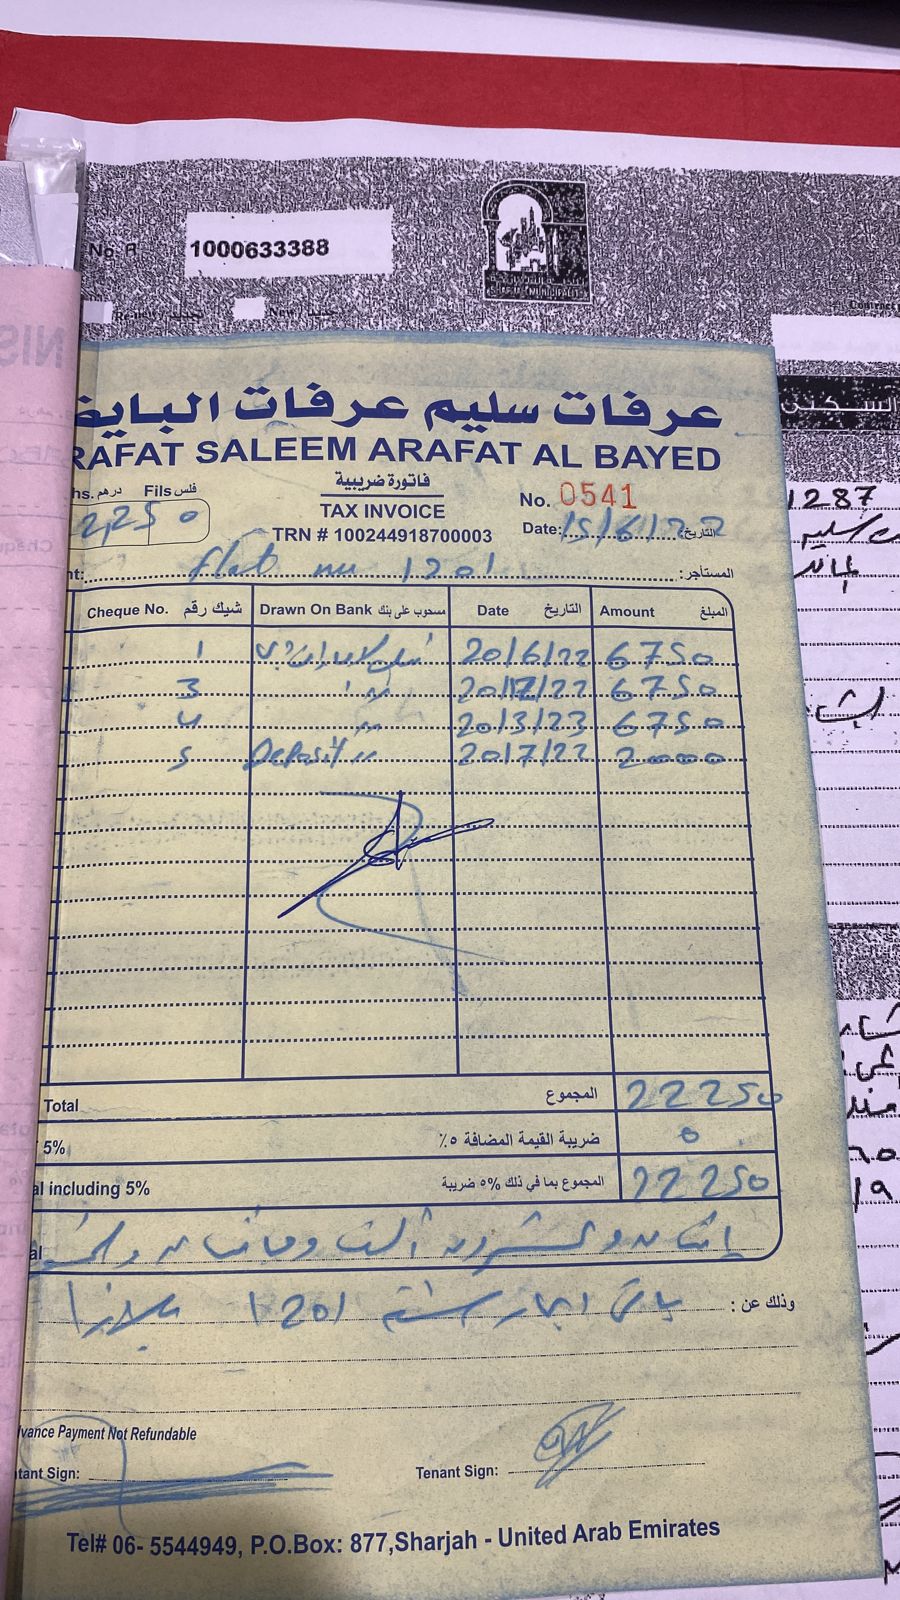 No. R 1000633388
Renew / تجديد New / جديد
عرفات سليم عرفات البايض
RAFAT SALEEM ARAFAT AL BAYED
hs. درهم Fils فلس
فاتورة ضريبية
TAX INVOICE
No. 0541
2,250
TRN # 100244918700003
Date: 15/6/22 التاريخ:
nt: flat no 1201 المستأجر:
Cheque No. شيك رقم Drawn On Bank مسحوب على بنك Date التاريخ Amount المبلغ
1 20/6/22 6750
3 〃 20/12/22 6750
4 〃 20/3/23 6750
5 Deposit 〃 20/7/22 2000
Total المجموع 22250
5% ضريبة القيمة المضافة ٥٪ 0
al including 5% المجموع بما في ذلك ٥% ضريبة 22250
al إثنان وعشرون ألف ومائتان و
وذلك عن : باقي ايجار شقة 1201
vance Payment Not Refundable
tant Sign: Tenant Sign:
Tel# 06- 5544949, P.O.Box: 877,Sharjah - United Arab Emirates
السكني
1287
سليم